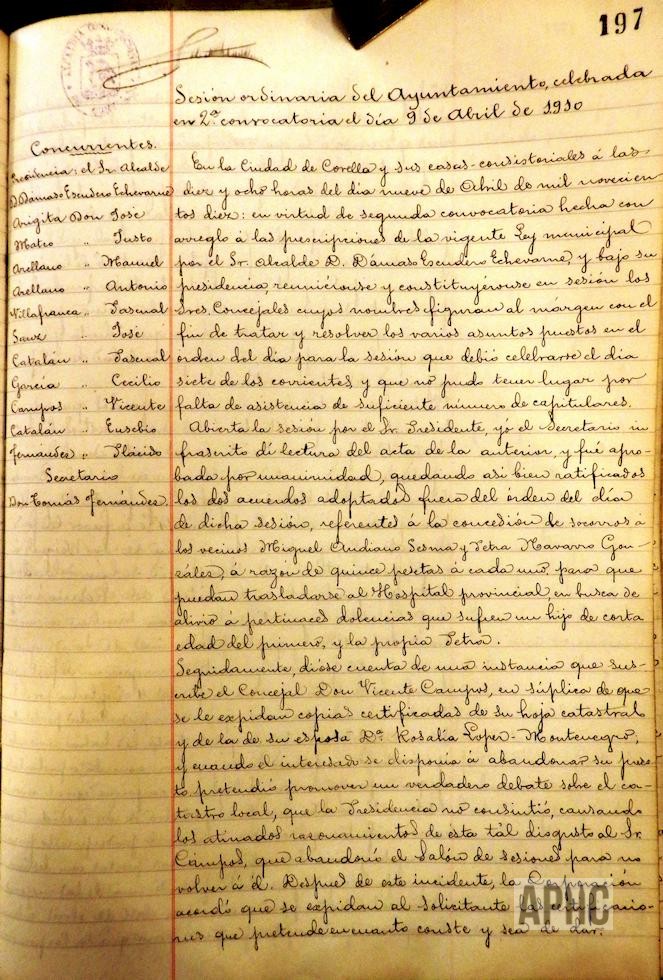 197
Sesión ordinaria del Ayuntamiento, celebrada
en 2ª convocatoria el día 9 de Abril de 1910
Concurrentes.
Presidencia: el Sr. Alcalde
D. Dámaso Escudero Echevarne
Arigita Don José
Mateo " Justo
Arellano " Manuel
Arellano " Antonio
Villafranca " Pascual
Sanz " José
Catalán " Pascual
García " Cecilio
Campos " Vicente
Catalán " Eusebio
Fernandez " Plácido
Secretario
Don Tomás Fernández.
En la Ciudad de Corella y sus casas-consistoriales á las
diez y ocho horas del día nueve de Abril de mil novecien
tos diez: en virtud de segunda convocatoria hecha con
arreglo á las prescripciones de la vigente Ley municipal
por el Sr. Alcalde D. Dámaso Escudero Echevarne, y bajo su
presidencia reuniéronse y constituyéronse en sesión los
Sres. Concejales cuyos nombres figuran al márgen con el
fin de tratar y resolver los varios asuntos puestos en el
orden del día para la sesión que debió celebrarse el día
siete de los corrientes y que nó pudo tener lugar por
falta de asistencia de suficiente número de capitulares.
Abierta la sesión por el Sr. Presidente, yó el Secretario in
frascrito dí lectura del acta de la anterior, y fué apro-
bada por unanimidad, quedando asi bien ratificados
los dos acuerdos adoptados fuera del órden del día
de dicha sesión, referentes á la concesión de socorros á
los vecinos Miguel Andiano Sesma y Petra Navarro Gon-
zález, á razón de quince pesetas á cada uno, para que
puedan trasladarse al Hospital provincial, en busca de
alivio á pertinaces dolencias que sufren un hijo de corta
edad del primero, y la propia Petra.
Seguidamente, dióse cuenta de una instancia que sus-
cribe el Concejal Don Vicente Campos, en súplica de que
se le expidan copias certificadas de su hoja catastral
y de la de su esposa Dª Rosalía Lopez-Montenegro,
y cuando el interesado se disponía á abandonar su pues-
to pretendió promover un verdadero debate sobre el ca-
tastro local, que la Presidencia nó consintió, causando
los atinados razonamientos de esta tal disgusto al Sr.
Campos, que abandonó el Salón de sesiones para no
volver á él. Despues de este incidente, la Corporación
acordó que se expidan al solicitante las certificacio-
nes que pretende en cuanto conste y sea de dar.
APHC